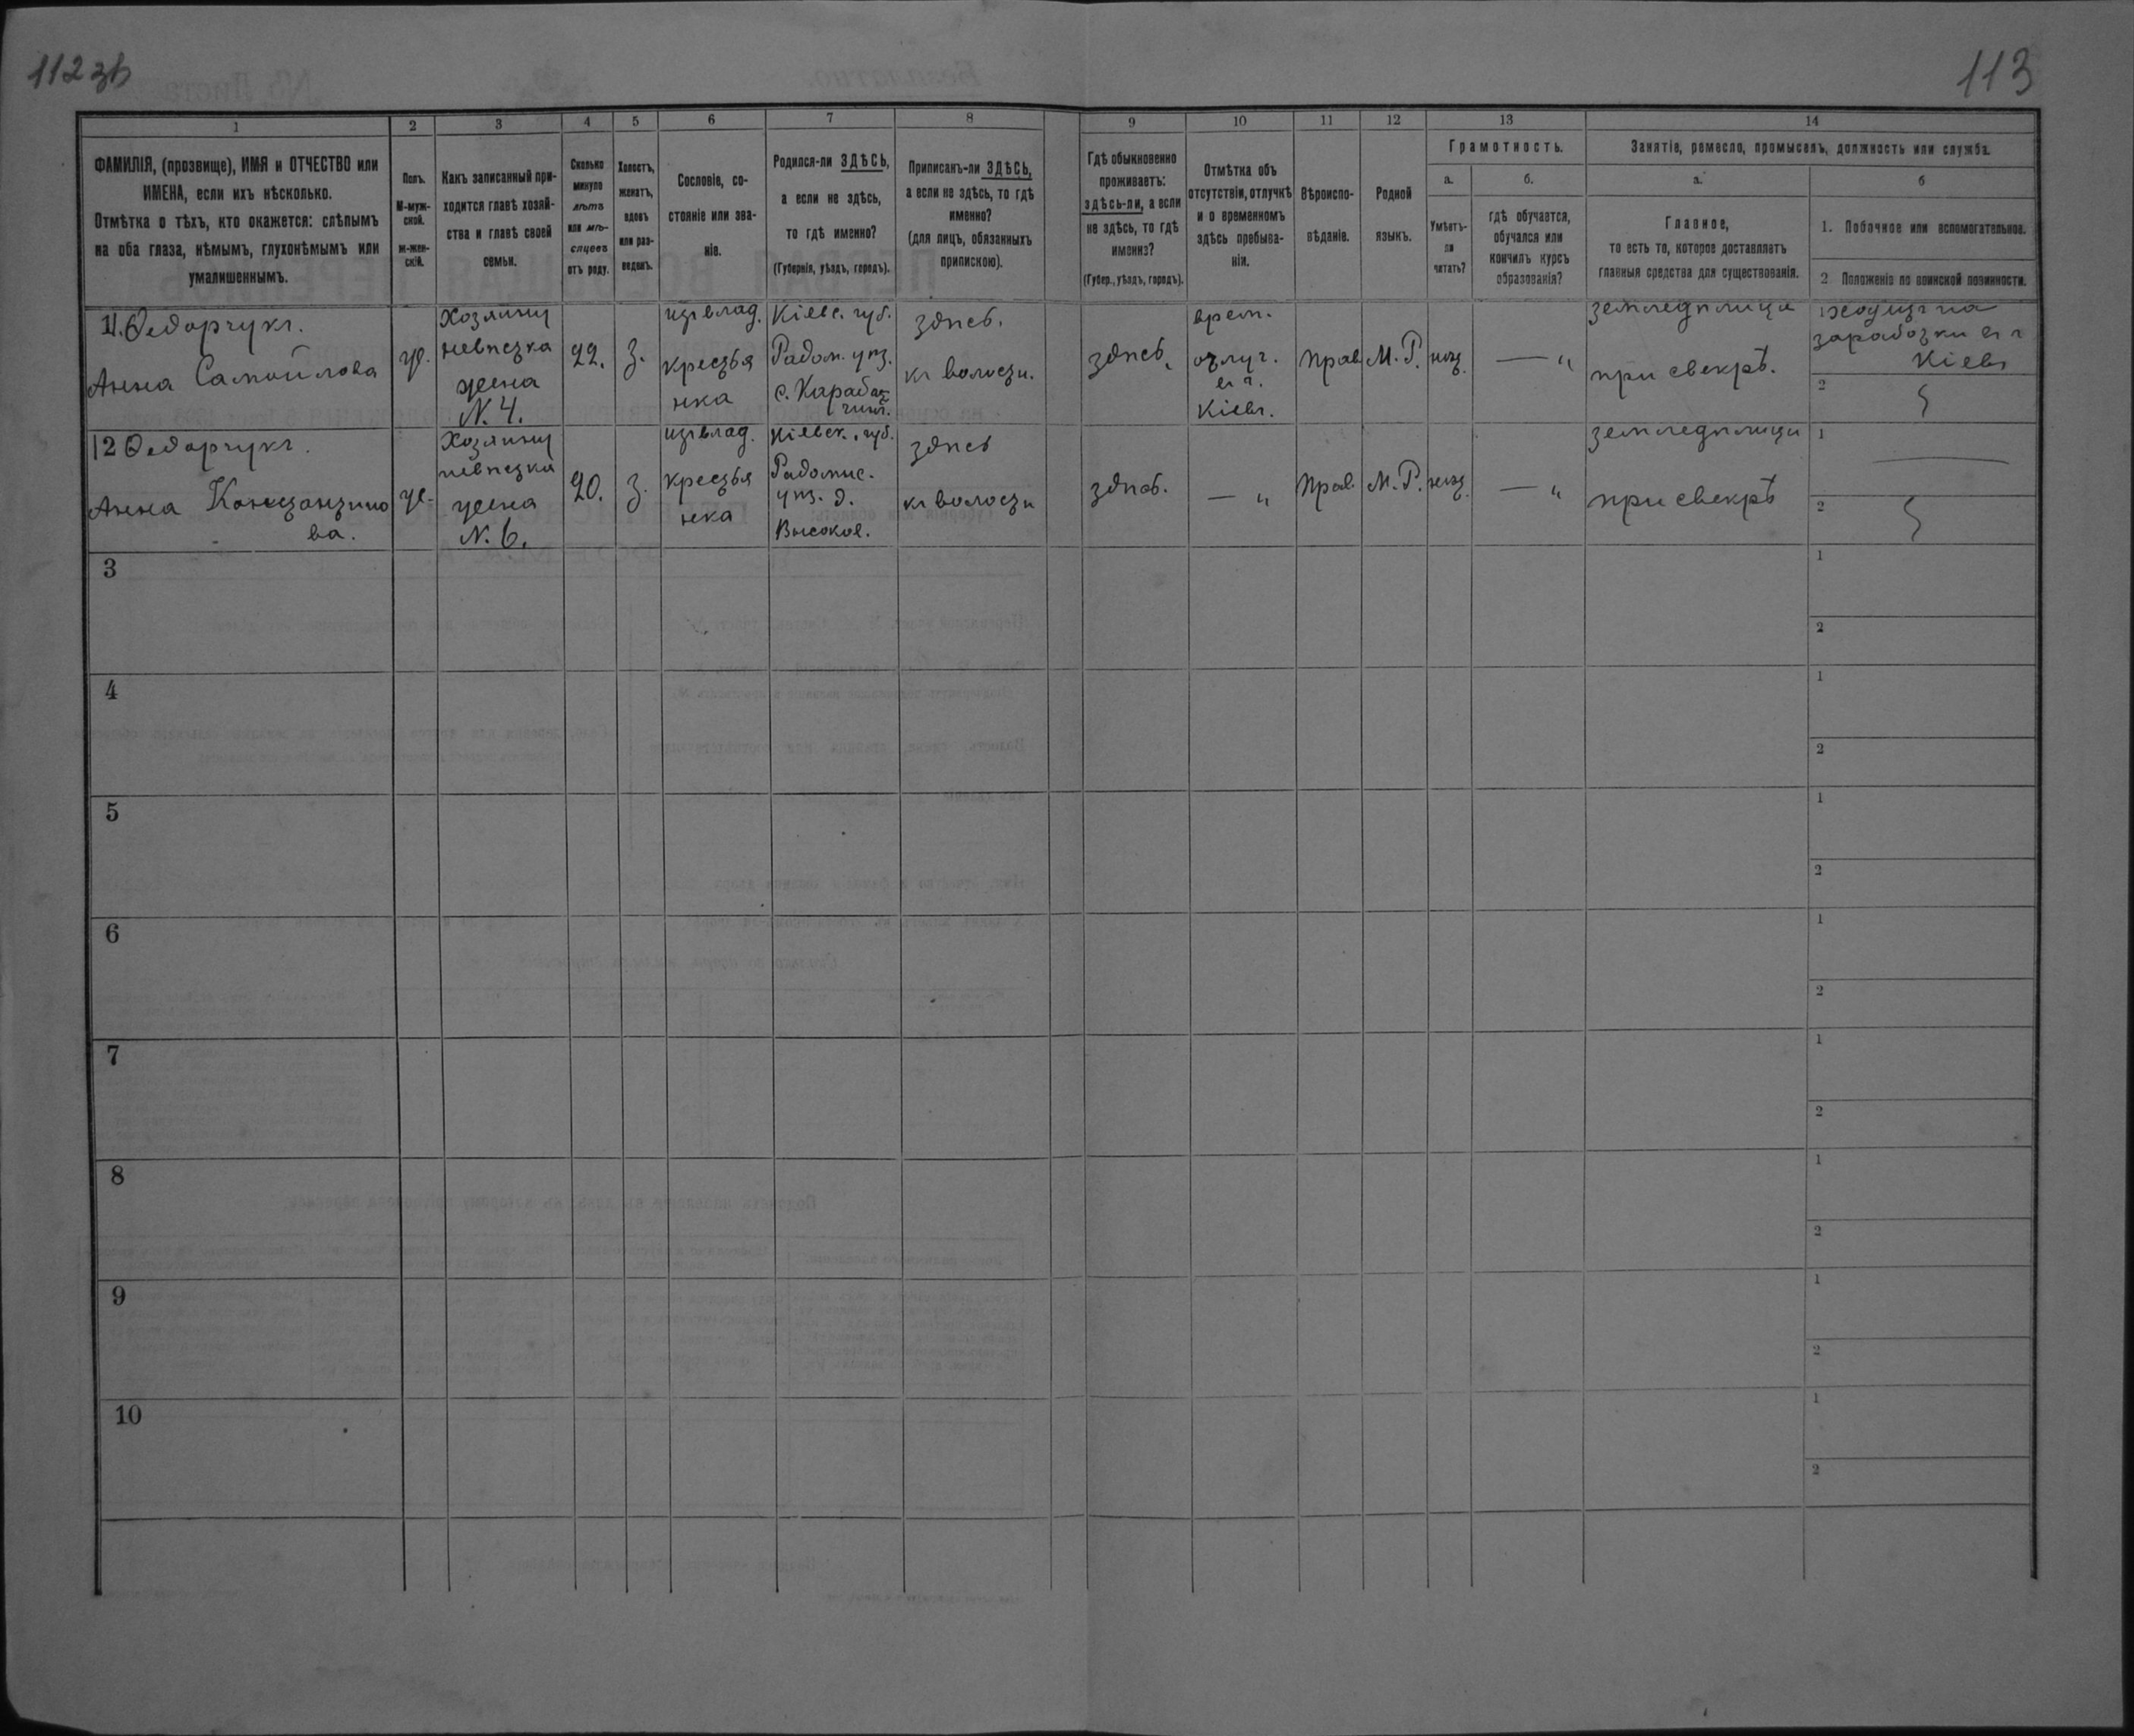 112 зв
113
1
2
3
4
5
6
7
8
9
10
11
12
13
14
ФАМИЛІЯ, (прозвище), ИМЯ и ОТЧЕСТВО или
ИМЕНА, если ихъ нѣсколько.
Отмѣтка о тѣхъ, кто окажется: слѣпымъ
на оба глаза, нѣмымъ, глухонѣмымъ или
умалишеннымъ.
Полъ.
М-муж-
ской.
ж-жен-
скій.
Какъ записанный при-
ходится главѣ хозяй-
ства и главѣ своей
семьи.
Сколько
минуло
лѣтъ
или мѣ-
сяцевъ
отъ роду.
Холостъ,
женатъ,
вдовъ
или раз-
веденъ.
Сословіе, со-
стояніе или зва-
ніе.
Родился-ли ЗДѢСЬ,
а если не здѣсь,
то гдѣ именно?
(Губернія, уѣздъ, городъ).
Приписанъ-ли ЗДѢСЬ,
а если не здѣсь, то гдѣ
именно?
(для лицъ, обязанныхъ
припискою).
Гдѣ обыкновенно
проживаетъ:
здѣсь-ли, а если
не здѣсь, то гдѣ
именно?
(Губер., уѣздъ, городъ).
Отмѣтка объ
отсутствіи, отлучкѣ
и о временномъ
здѣсь пребыва-
ніи.
Вѣроиспо-
вѣданіе.
Родной
языкъ.
Грамотность.
а.
Умѣетъ-
ли
читать?
б.
гдѣ обучается,
обучался или
кончилъ курсъ
образованія?
Занятіе, ремесло, промыселъ, должность или служба.
а.
Главное,
то есть то, которое доставляетъ
главныя средства для существованія.
б
1. Побочное или вспомогательное.
2 Положеніе по воинской повинности.
11. Федорчукъ.
Анна Самойлова
ж.
Хозяину
невѣстка
жена
N. 4.
22.
З.
из влад.
крестья
нка
Кіевс. губ.
Радом. уѣз.
с. Карабач
чинъ.
здѣсь.
къ волости.
здѣсь.
врем.
отлуч.
въ г.
Кіевъ.
прав.
М. Р.
нѣт.
— "
земледѣлица
при свекрѣ.
1 ходитъ на
заработки въ г
Кіевъ
2
12 Федорчукъ.
Анна Констанстино
ва.
ж.
Хозяину
невѣстка
жена
N. 6.
20.
З.
из влад.
крестья
нка
Кіевск. губ.
Радомис.
уѣз. д.
Высокое.
здѣсь
къ волости
здѣсь.
— "
прав.
М. Р.
нѣт.
— "
земледѣлица
при свекрѣ
1
2
3
1
2
4
1
2
5
1
2
6
1
2
7
1
2
8
1
2
9
1
2
10
1
2